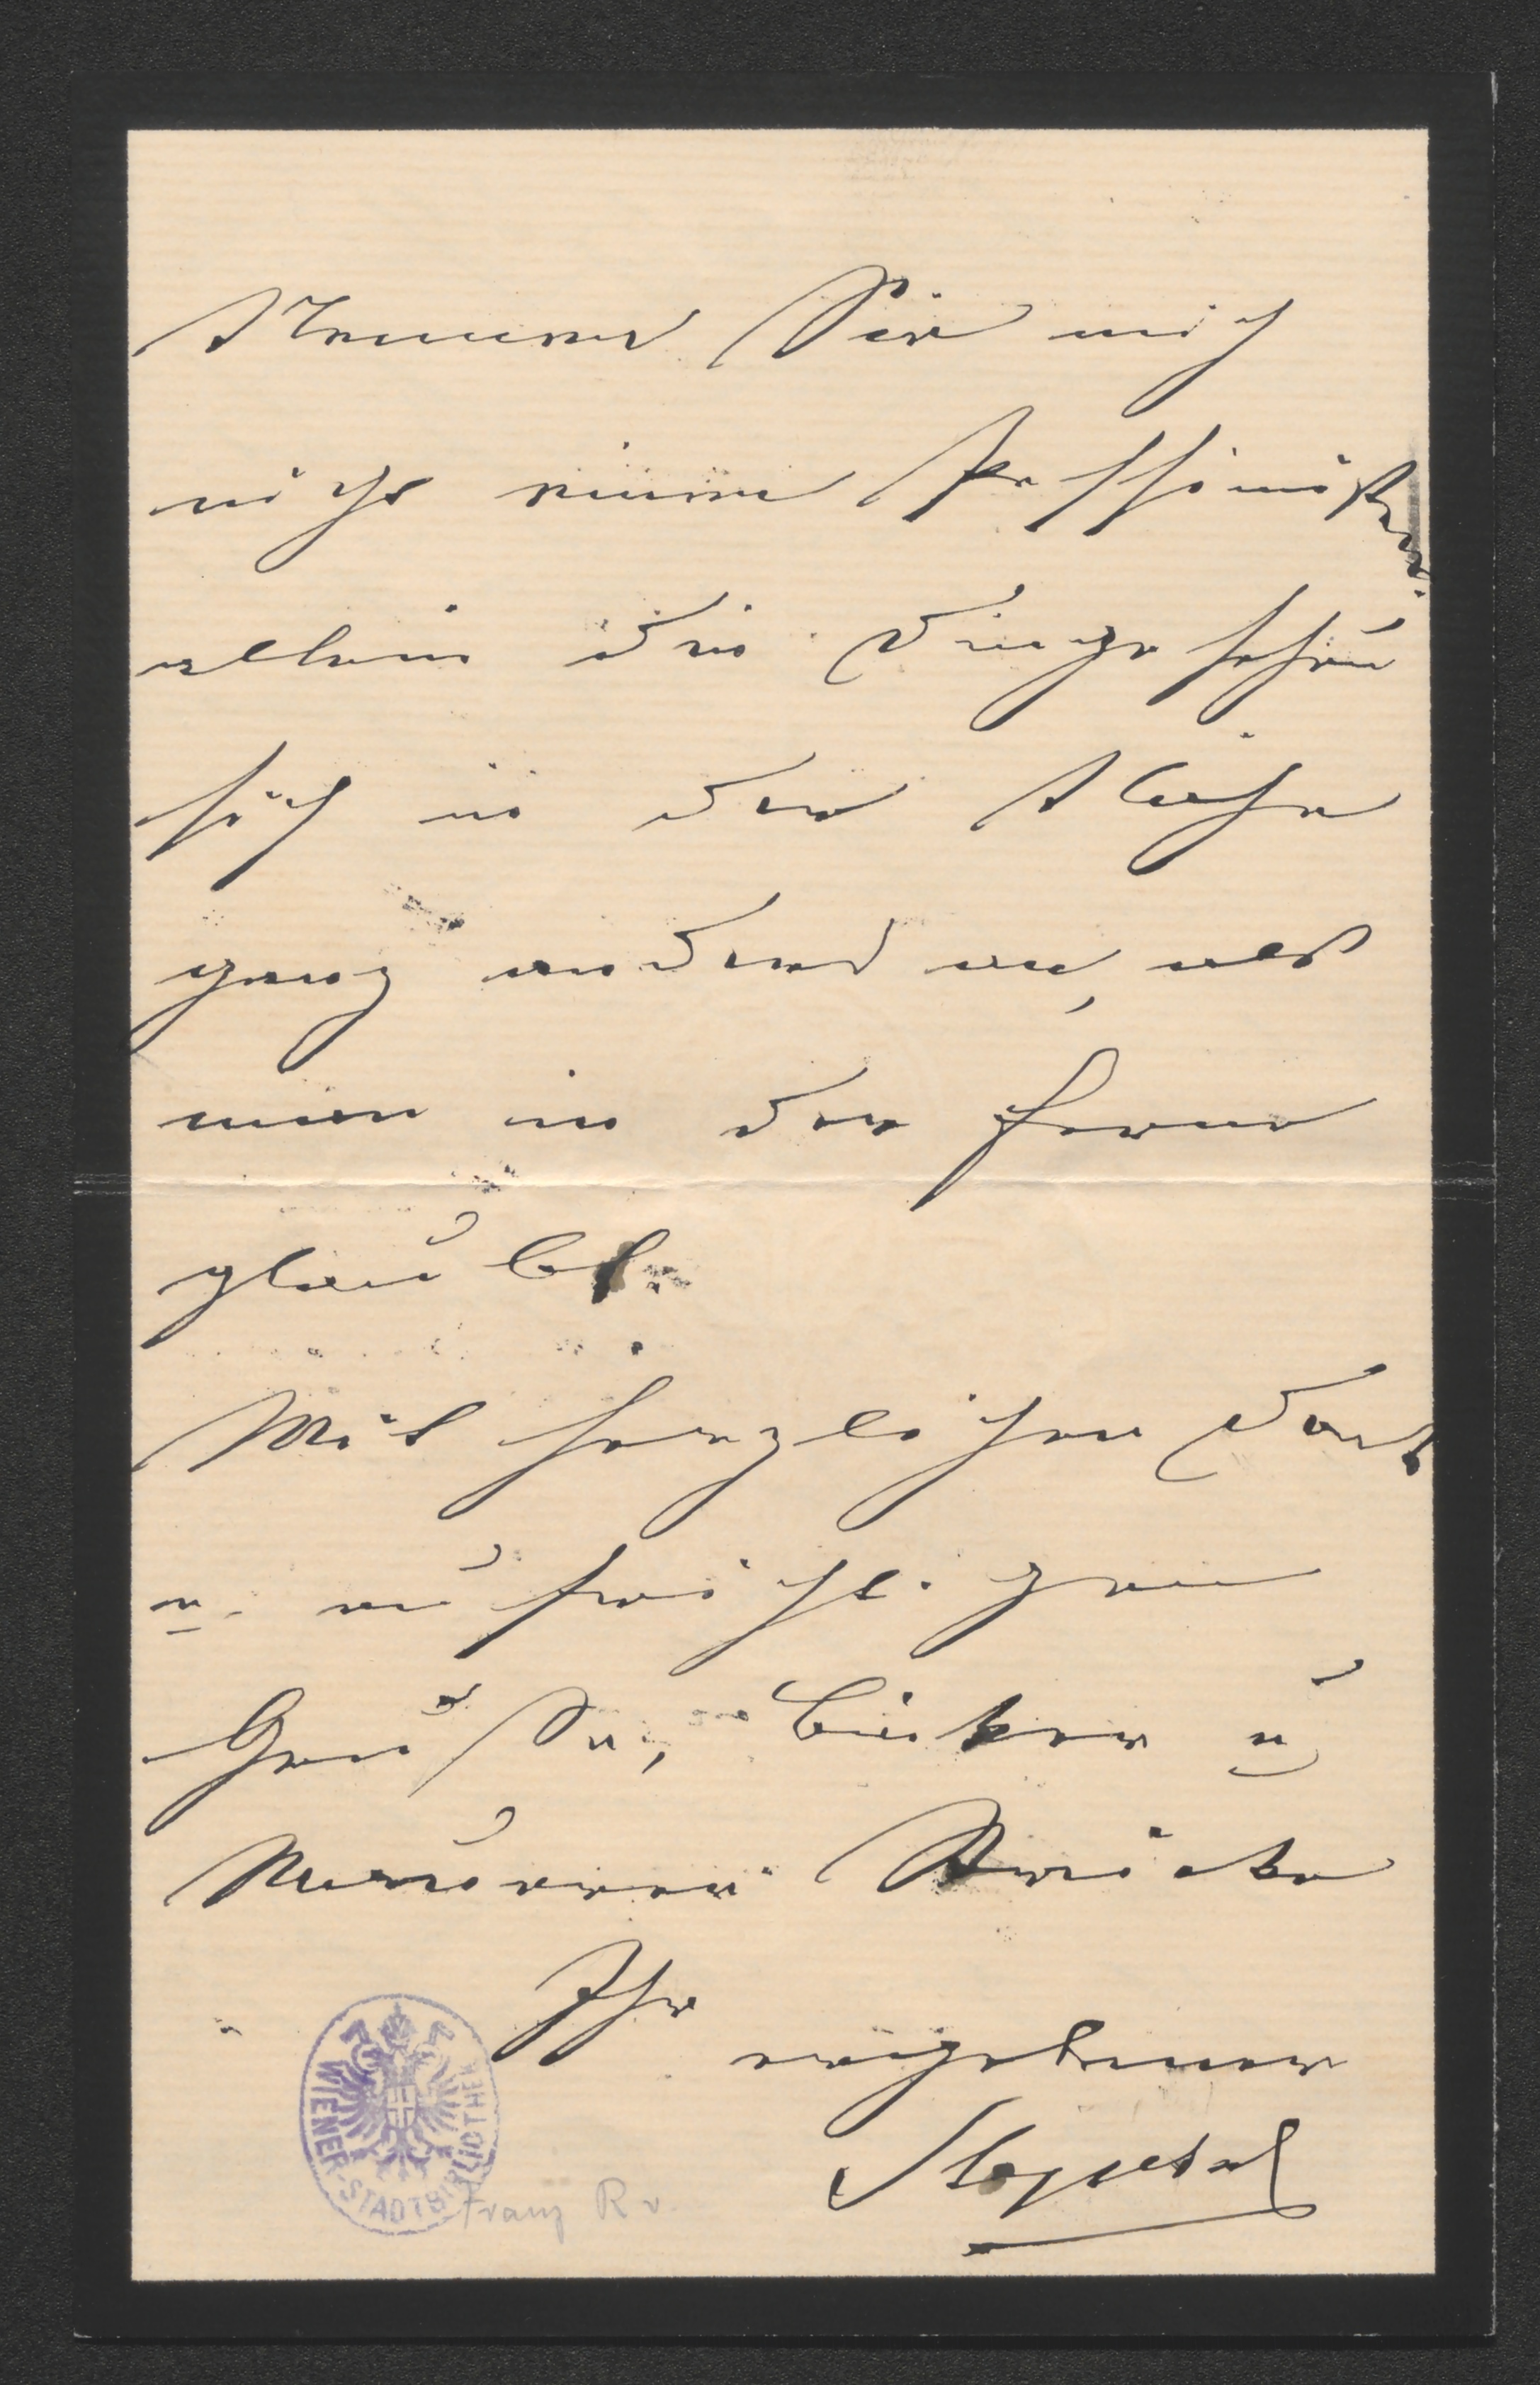 Nennen Sie mich
nicht einen Pessimisten
allein die Dinge sehen
sich in der Nähe
ganz anders an, als
man in der Ferne
glaubt.
Mit herzlichen Dank
u. aufrichtigen
Grüßen, u
Ihr
ergebener
WIENER-STADTBIBLIOTHEK
Franz R v.